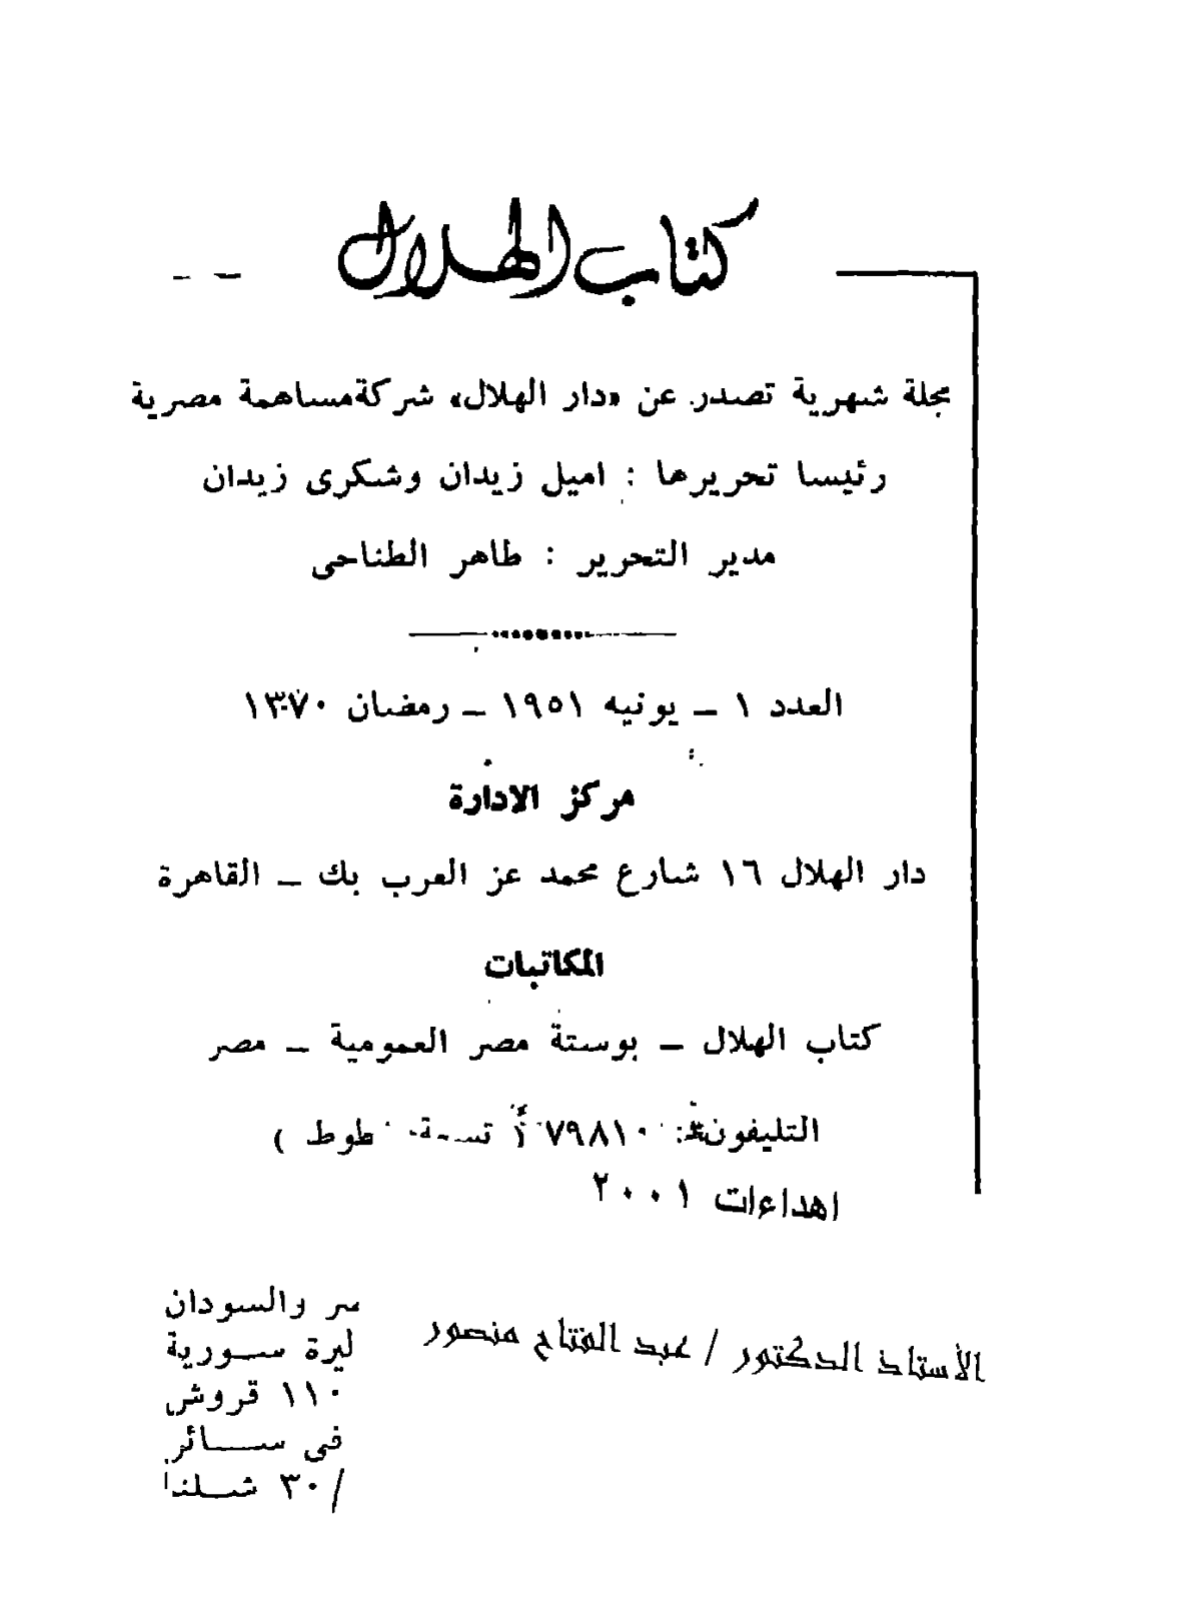 كتاب الهلال
مجلة شهرية تصدر عن «دار الهلال» شركة مساهمة مصرية
رئيسا تحريرها : اميل زيدان وشكرى زيدان
مدير التحرير : طاهر الطناحى
العدد ١ ــ يونيه ١٩٥١ ــ رمضان ١٣٧٠
مركز الادارة
دار الهلال ١٦ شارع محمد عز العرب بك ــ القاهرة
المكاتبات
كتاب الهلال ــ بوستة مصر العمومية ــ مصر
التليفون : ٧٩٨١٠ (
اهداءات ٢٠٠١
الأستاذ الدكتور / عبد الفتاح منصور
والسودان
ليرة سورية
١١٠ قروش
فى سائر
/٣٠ شلنا